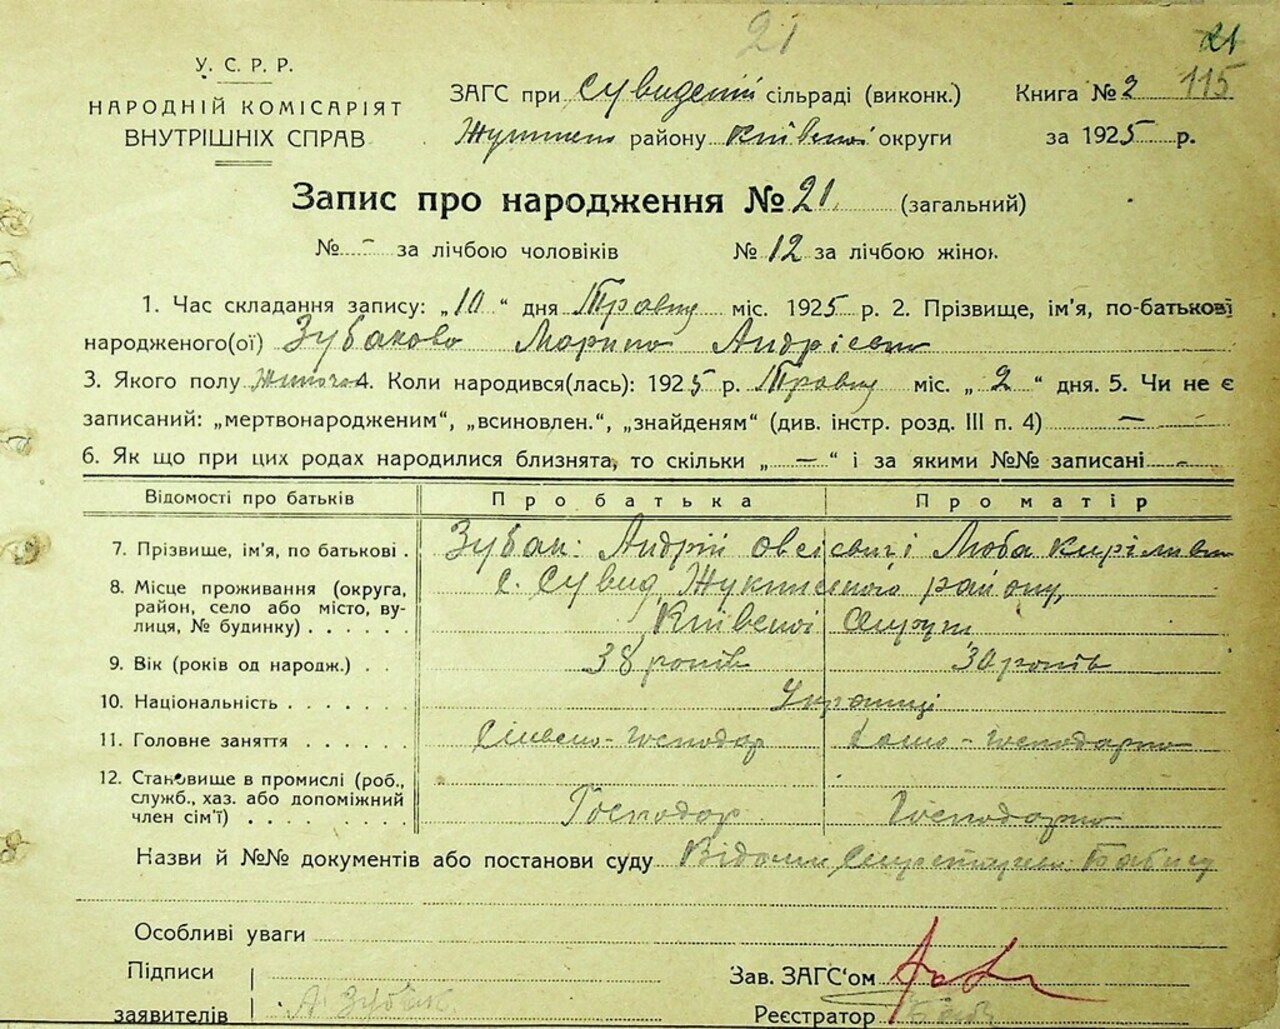 21
21
115
У. С. Р. Р.
НАРОДНІЙ КОМІСАРІЯТ
ВНУТРІШНІХ СПРАВ
ЗАГС при Сувидській сільраді (виконк.) Книга № 2
району Київської округи за 1925 р.
Запис про народження № 21 (загальний)
№ - за лічбою чоловіків № 12 за лічбою жінок
1. Час складання запису: „10“ дня Травня міс. 1925 р. 2. Прізвище, ім'я, по-батькові
народженого(ої) Зубакова Марина Андрієвна
3. Якого полу Жіноча 4. Коли народився(лась): 1925 р. Травня міс. „2“ дня. 5. Чи не є
записаний: „мертвонародженим“, „всиновлен.“, „знайденям“ (див. інстр. розд. III п. 4) —
6. Як що при цих родах народилися близнята, то скільки „—“ і за якими №№ записані -
Відомості про батьків Про батька Про матір
7. Прізвище, ім'я, по батькові . Зубак: Андрій Овсієвич і Люба Кирілівна
8. Місце проживання (округа, район, село або місто, вулиця, № будинку) . . . . . . с. Сувид, району,
Київської Округи
9. Вік (років од народж.) . . 38 років 30 років
10. Національність . . . . . . Українці
11. Головне заняття . . . . . . господар господарка
12. Становище в промислі (роб., служб., хаз. або допоміжний член сім'ї) . . . . . . . . Господар Господарка
Назви й №№ документів або постанови суду
Особливі уваги
Підписи
заявителів А Зубак
Зав. ЗАГС'ом
Реєстратор